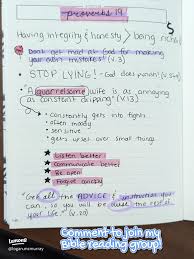 proverbs 19
5
Having integrity & honesty > being rich!
Don't get mad at God for making
your own mistakes! (v.3)
• STOP LYING! - God does punish (v.5+9)
• "A quarrelsome wife is as annoying
as constant dripping" (v.13)
constantly gets into fights
often moody
sensitive
gets upset over small things
listen better
communicate better
Be open
Forgive quickly
"Get all the ADVICE & instruction you
can, so you will be wise the rest of
your life" (v.20)
Lemon8
@logan.mcmurray
Comment to join my
Bible reading group!